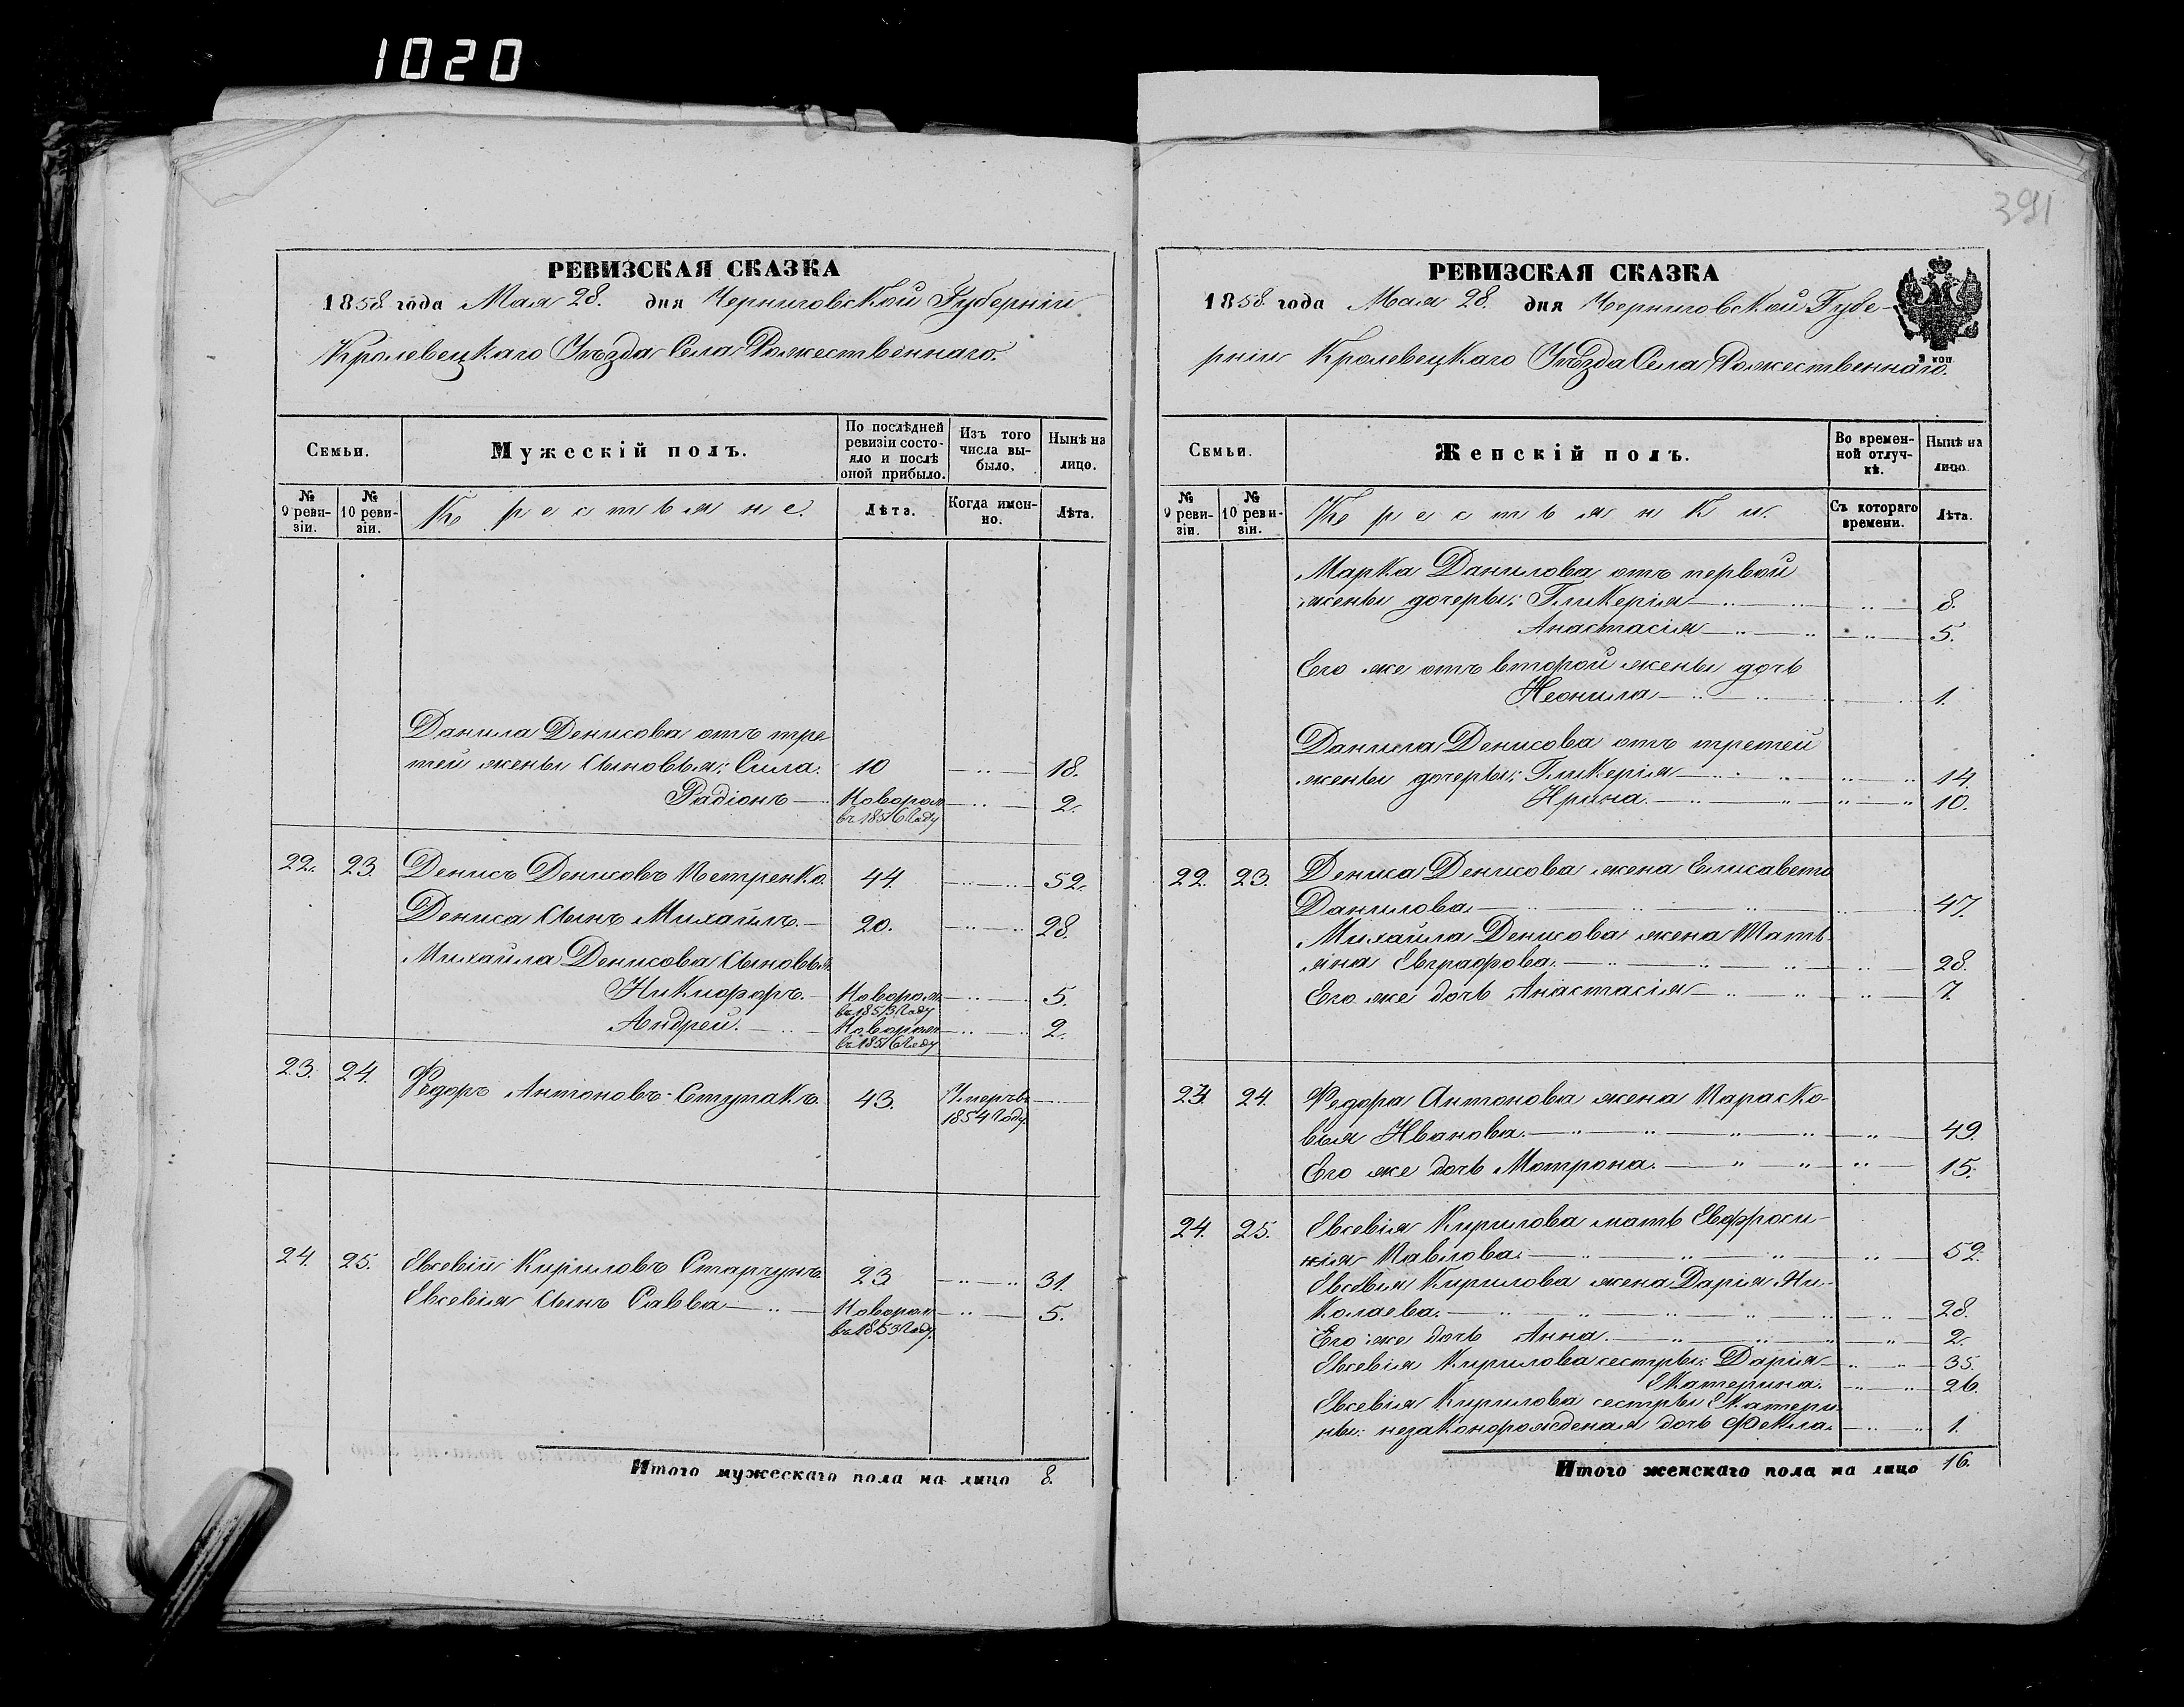 1020
391
РЕВИЗСКАЯ СКАЗКА
1858 года Мая 28. дня Черниговской Губерніи
Кролевецкаго Уѣзда Села Рожественнаго.
Семьи.
Мужескій полъ.
По послѣдней
ревизіи состо-
яло и послѣ
оной прибыло.
Изъ того
числа вы-
было.
Нынѣ на
лицо.
№
9 реви-
зіи.
№
10 реви-
зіи.
Крестьяне.
Лѣта.
Когда имен-
но.
Лѣта.
Данила Денисова отъ тре
тей жены сыновья: Сила. 10 18.
Радіонъ Новорож 2.
въ 1856 году
22. 23. Денисъ Денисовъ Петренко. 44. 52.
Дениса сынъ Михаилъ. 20. 28.
Михаила Денисова сыновья
Никифоръ. Новорож. 5.
въ 1853 году
Андрей. Новорож 2.
въ 1856 году
23. 24. Федоръ Антоновъ Ступакъ. 43. Умеръ въ
1854 году.
24. 25. Евсевій Кириловъ Старчунъ. 23 31.
Евсевія сынъ Савва Новорож 5.
въ 1853 году.
Итого мужескаго пола на лицо 8.
РЕВИЗСКАЯ СКАЗКА
1858. года Мая 28. дня Черниговской Губе-
рніи Кролевецкаго Уѣзда Села Рожественнаго.
9 коп
Семьи.
Женскій полъ.
Во времен-
ной отлуч-
кѣ.
Нынѣ на
лицо
№
9 реви-
зіи.
№
10 реви-
зіи.
Крестьянки.
Съ котораго
времени.
Лѣта.
Марка Данилова отъ первой
жены дочеры: Гликерія 8.
Анастасія 5.
Его же отъ второй жены дочь
Неонила 1.
Данила Денисова отъ третей
жены дочеры: Гликерія 14.
Ирина. 10.
22. 23. Дениса Денисова жена Елисавета
Данилова. 47.
Михаила Денисова жена Татья
яна Евграфова. 28.
Его же дочь Анастасія 7.
23. 24. Федора Антонова жена Параско-
выя Иванова. 49.
Его же дочь Мотрона. 15.
24. 25. Евсевія Кирилова мать Евфроси-
нія Павлова. 52.
Евсевія Кирилова жена Дарія Ни-
колаева. 28.
Его же дочь Анна. 2.
Евсевія Кирилова сестры: Дарія 35.
Екатерина. 26.
Евсевія Кирилова сестры Екатери
ны: незаконорожденая дочь Фекла. 1.
Итого женскаго пола на лицо 16.